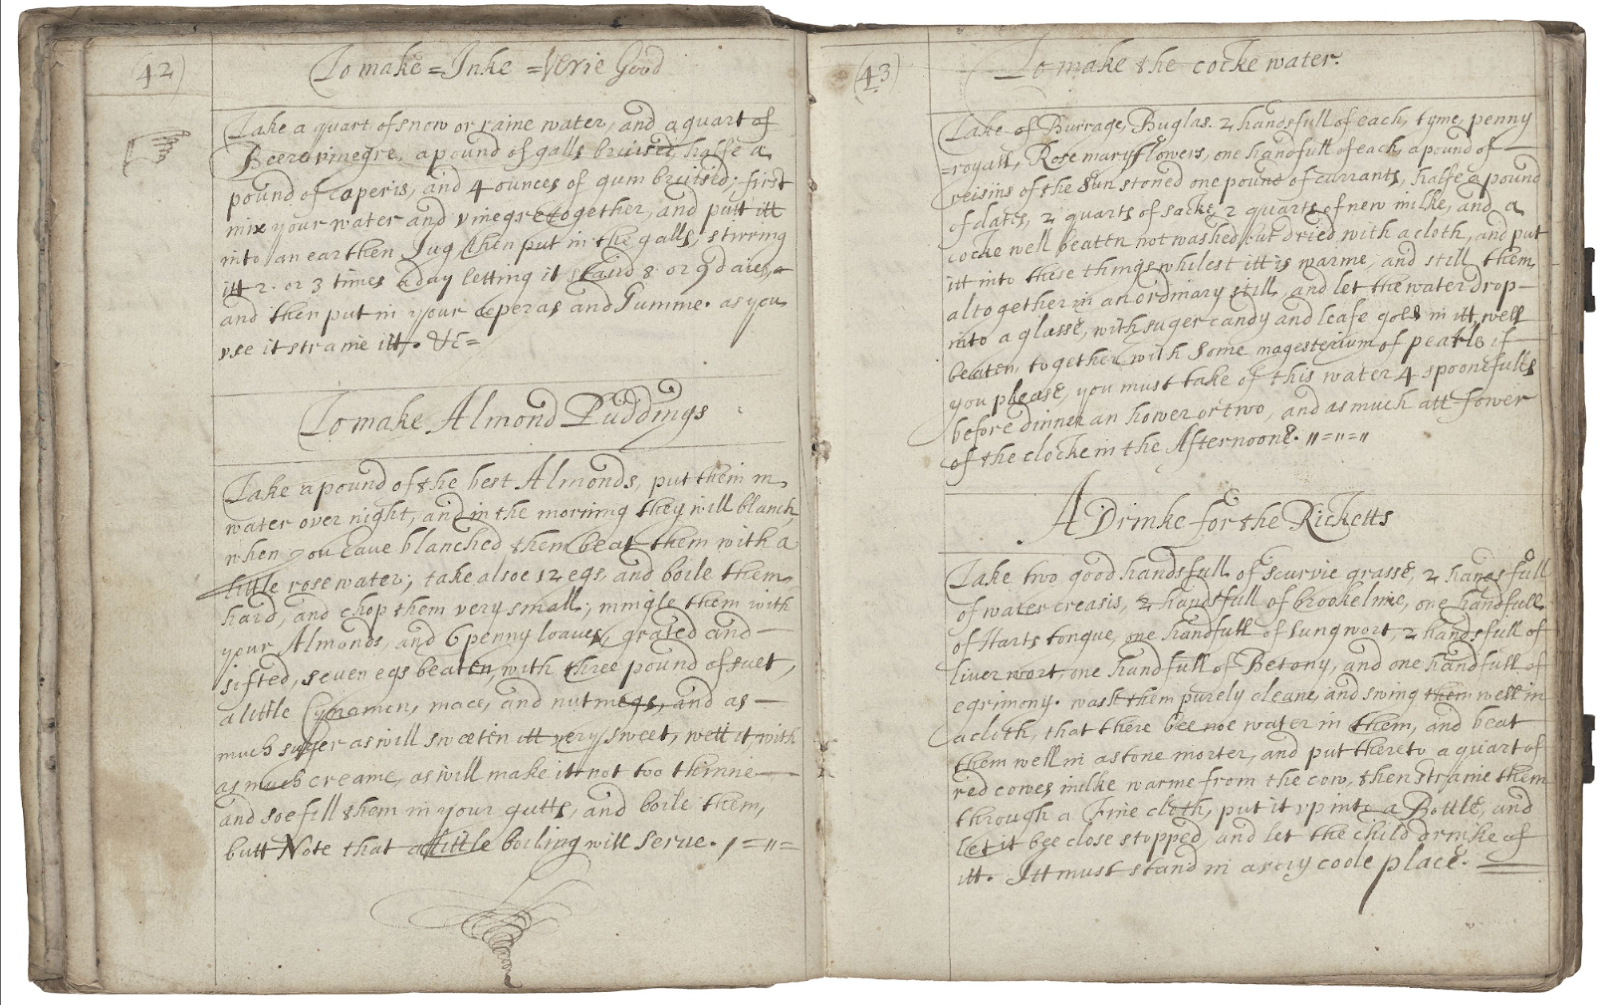 (42)
To make = Inke = Verie Good
Take a quart of snow or raine water, and a quart of
Beere vinegre, a pound of galls bruised, halfe a
pound of coperis, and 4 ounces of gum bruised; first
mix your water and vinegre together, and putt itt
into an earthen Jug then put in the galls, stirring
itt 2. or 3 times a day letting it stand 8 or 9 daies,
and then put in your coperas and Gumme. as you
vse it straine itt. &c=
To make Almond Puddings
Take a pound of the best Almonds, put them in
water over night, and in the morning they will blanch,
when you haue blanched them beat them with a
little rose water; take alsoe 12 egs, and boile them
hard, and chop them very small; mingle them with
your Almonds, and 6 penny loaves, grated and —
sifted, seven egs beaten, with three pound of suet,
a little Cynamon, mace, and nutmegs, and as —
much suger as will sweeten itt very sweet, wett it with
as much creame, as will make itt not too thinne —
and soe fill them in your gutts, and boile them,
butt Note that a little boiling will serue.
(43)
To make the cocke water.
Take of Burrage, Buglas. 2 handsfull of each, tyme, penny
=royall, Rosemary flowers, one handfull of each, a pound of —
reisins of the Sun stoned one pound of currants, halfe a pound
of dates, 2 quarts of sacke, 2 quarts of new milke, and a
cocke well beatin not washed but dried with a cloth, and put
itt into these things whilest itt is warme, and still them
altogether in an ordinary still, and let the water drop —
into a glasse, with suger candy and leafe gold in itt, well
beaten, together with some magesterium of pearls if
you please, you must take of this water 4 spoonefulls
before dinner an hower or two, and as much att fower
of the clocke in the Afternoone. "="="
A Drinke for the Ricketts
Take two good handsfull of Scurvie grasse, 2 handsfull
of water creasis, 2 handsfull of brookelime, one handfull
of Harts tongue, one handfull of Lungwort, 2 handsfull of
liver wort, one handfull of Betony, and one handfull of
egrimony. wash them purely cleane, and swing them well in
a cloth, that there bee noe water in them, and beat
them well in a stone morter, and put thereto a quart of
red cowes milke warme from the cow, then straine them
through a Fine cloth, put it vp into a Bottle, and
let it bee close stopped, and let the child drinke of
itt. Itt must stand in a very coole place.